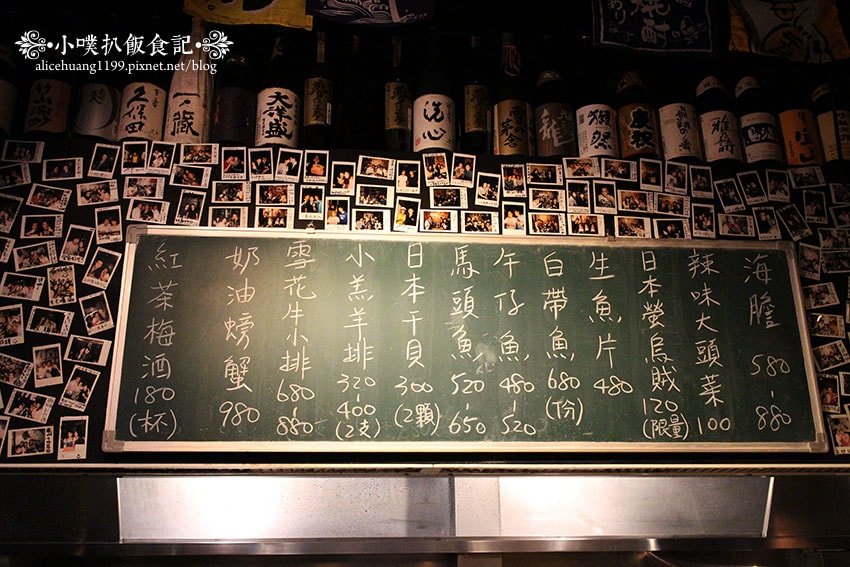 小噗扒飯食記
alicehuang1199.pixnet.net/blog
久保田
一ノ蔵
大洋盛
洗心
海膽 580-880
辣味大頭菜 100
日本螢烏賊 120 (限量)
生魚片 480
白帶魚 680 (份)
午仔魚 480-520
馬頭魚 520-650
日本干貝 300 (2顆)
小羔羊排 320-400 (2支)
雪花牛小排 680-880
奶油螃蟹 980
紅茶梅酒 180 (杯)